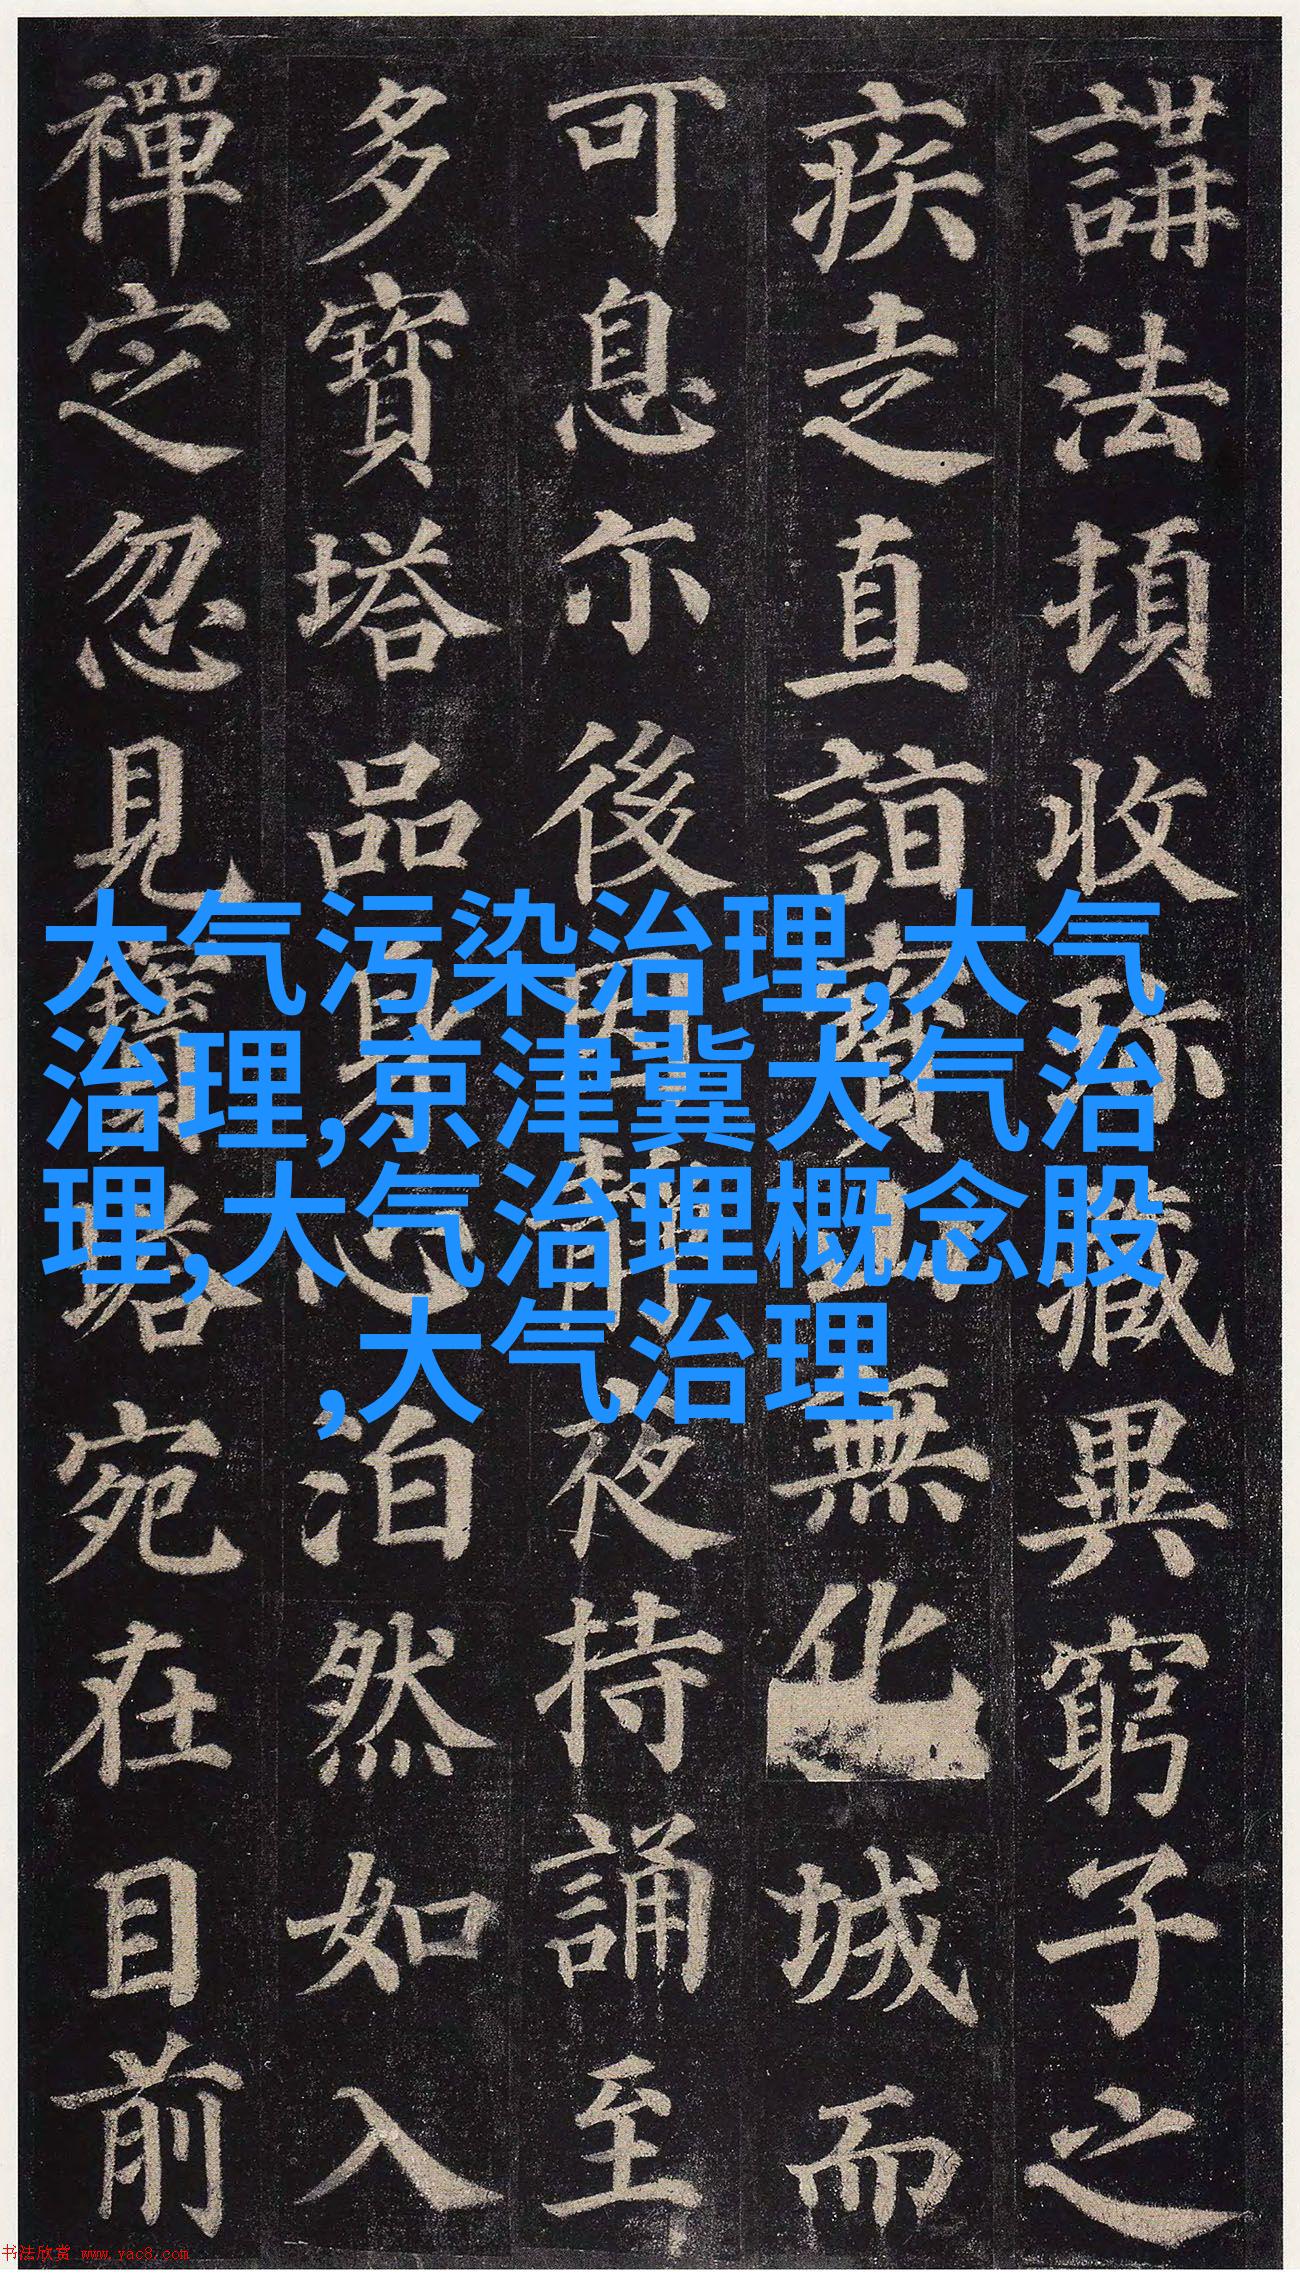 講法頂收珎藏異窮子之
疾走直詣寶山無化城而
可息尒後因靜夜持誦至
多寶塔品身心泊然如入
禪定忽見寶塔宛在目前
大气污染治理,大气
治理,京津冀大气治
理,大气治理概念股
,大气治理
书法欣赏 www.yac8.com